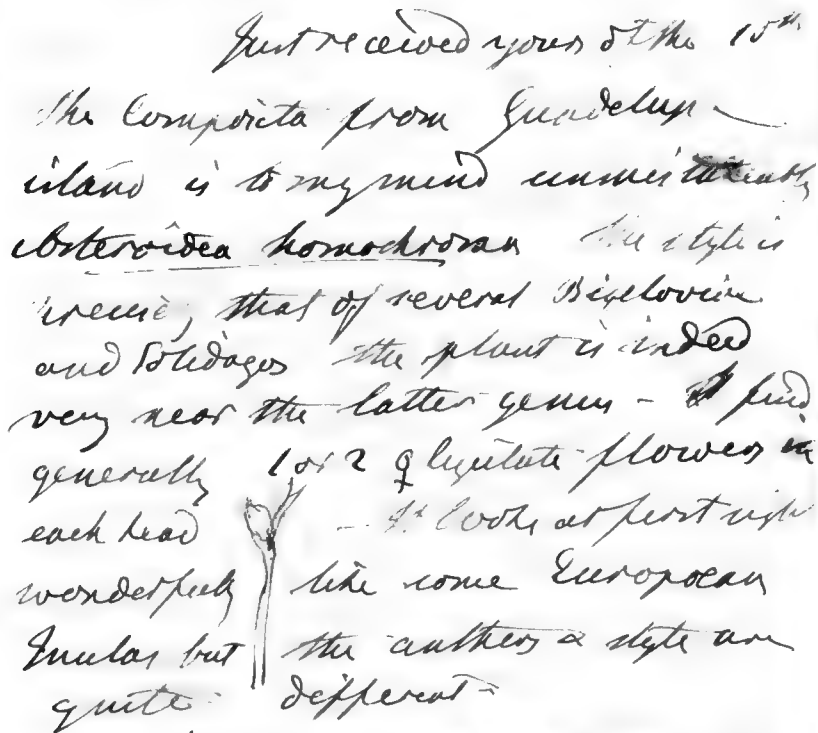 Just received yours of the 15th
the Composita from Guadelup
island is to my mind unmistakeably
Asteroidea homochroman the style is
precise, that of several Bigelovias
and Solidagos the plant is indeed
very near the latter genus - I find
generally 1 or 2 ♀ ligulate flowers in
each head - It looks at first sight
wonderfully like some European
Inulas but the anthers & style are
quite different -